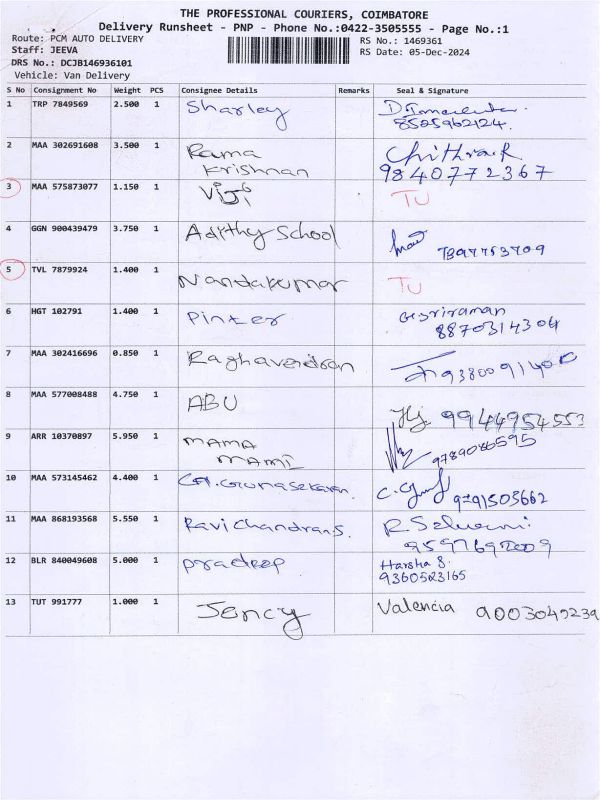 THE PROFESSIONAL COURIERS, COIMBATORE
Delivery Runsheet - PNP - Phone No.:0422-3505555 - Page No.:1
Route: PCM AUTO DELIVERY
Staff: JEEVA
DRS No.: DCJB146936101
Vehicle: Van Delivery
RS No.: 1469361
RS Date: 05-Dec-2024
S No Consignment No Weight PCS Consignee Details Remarks Seal & Signature
1 TRP 7849569 2.500 1 Sharley
8525962124.
2 MAA 302691608 3.500 1 Rama Chithra R
Krishnan 9840772367
3 MAA 575873077 1.150 1 Viji TU
4 GGN 900439479 3.750 1 Adithy School
5 TVL 7879924 1.400 1 Nandakumar TU
6 HGT 102791 1.400 1 Pinter Gesriraman
8870314304
7 MAA 302416696 0.850 1
8 MAA 577008488 4.750 1 ABU 9944954553
9 ARR 10370897 5.950 1 MAMA 9789086595
MAMI
10 MAA 573145462 4.400 1 CH. Gunasekaran. 9791503662
11 MAA 868193568 5.550 1 Ravi Chandran.S. R Selvami
12 BLR 840049608 5.000 1 pradeep Harsha S.
9360523165
13 TUT 991777 1.000 1 Jency Valencia 9003049239